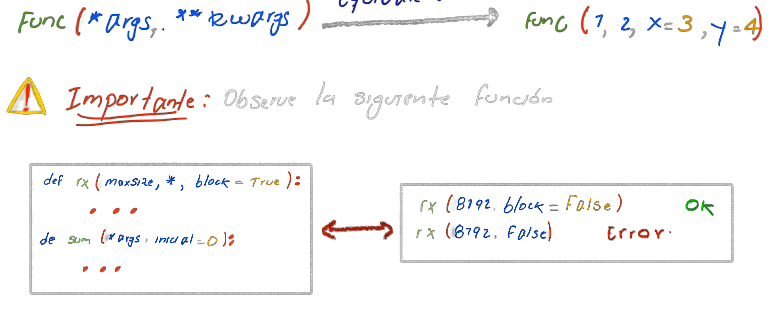 Func (*args, **kwargs) Func (1, 2, x=3, y=4)
Importante: Observe la siguiente función
def rx (maxsize, *, block = True):
...
de sum (*args, inicial = 0):
...
rx (8192, block = False) OK
rx (8192, False) Error.